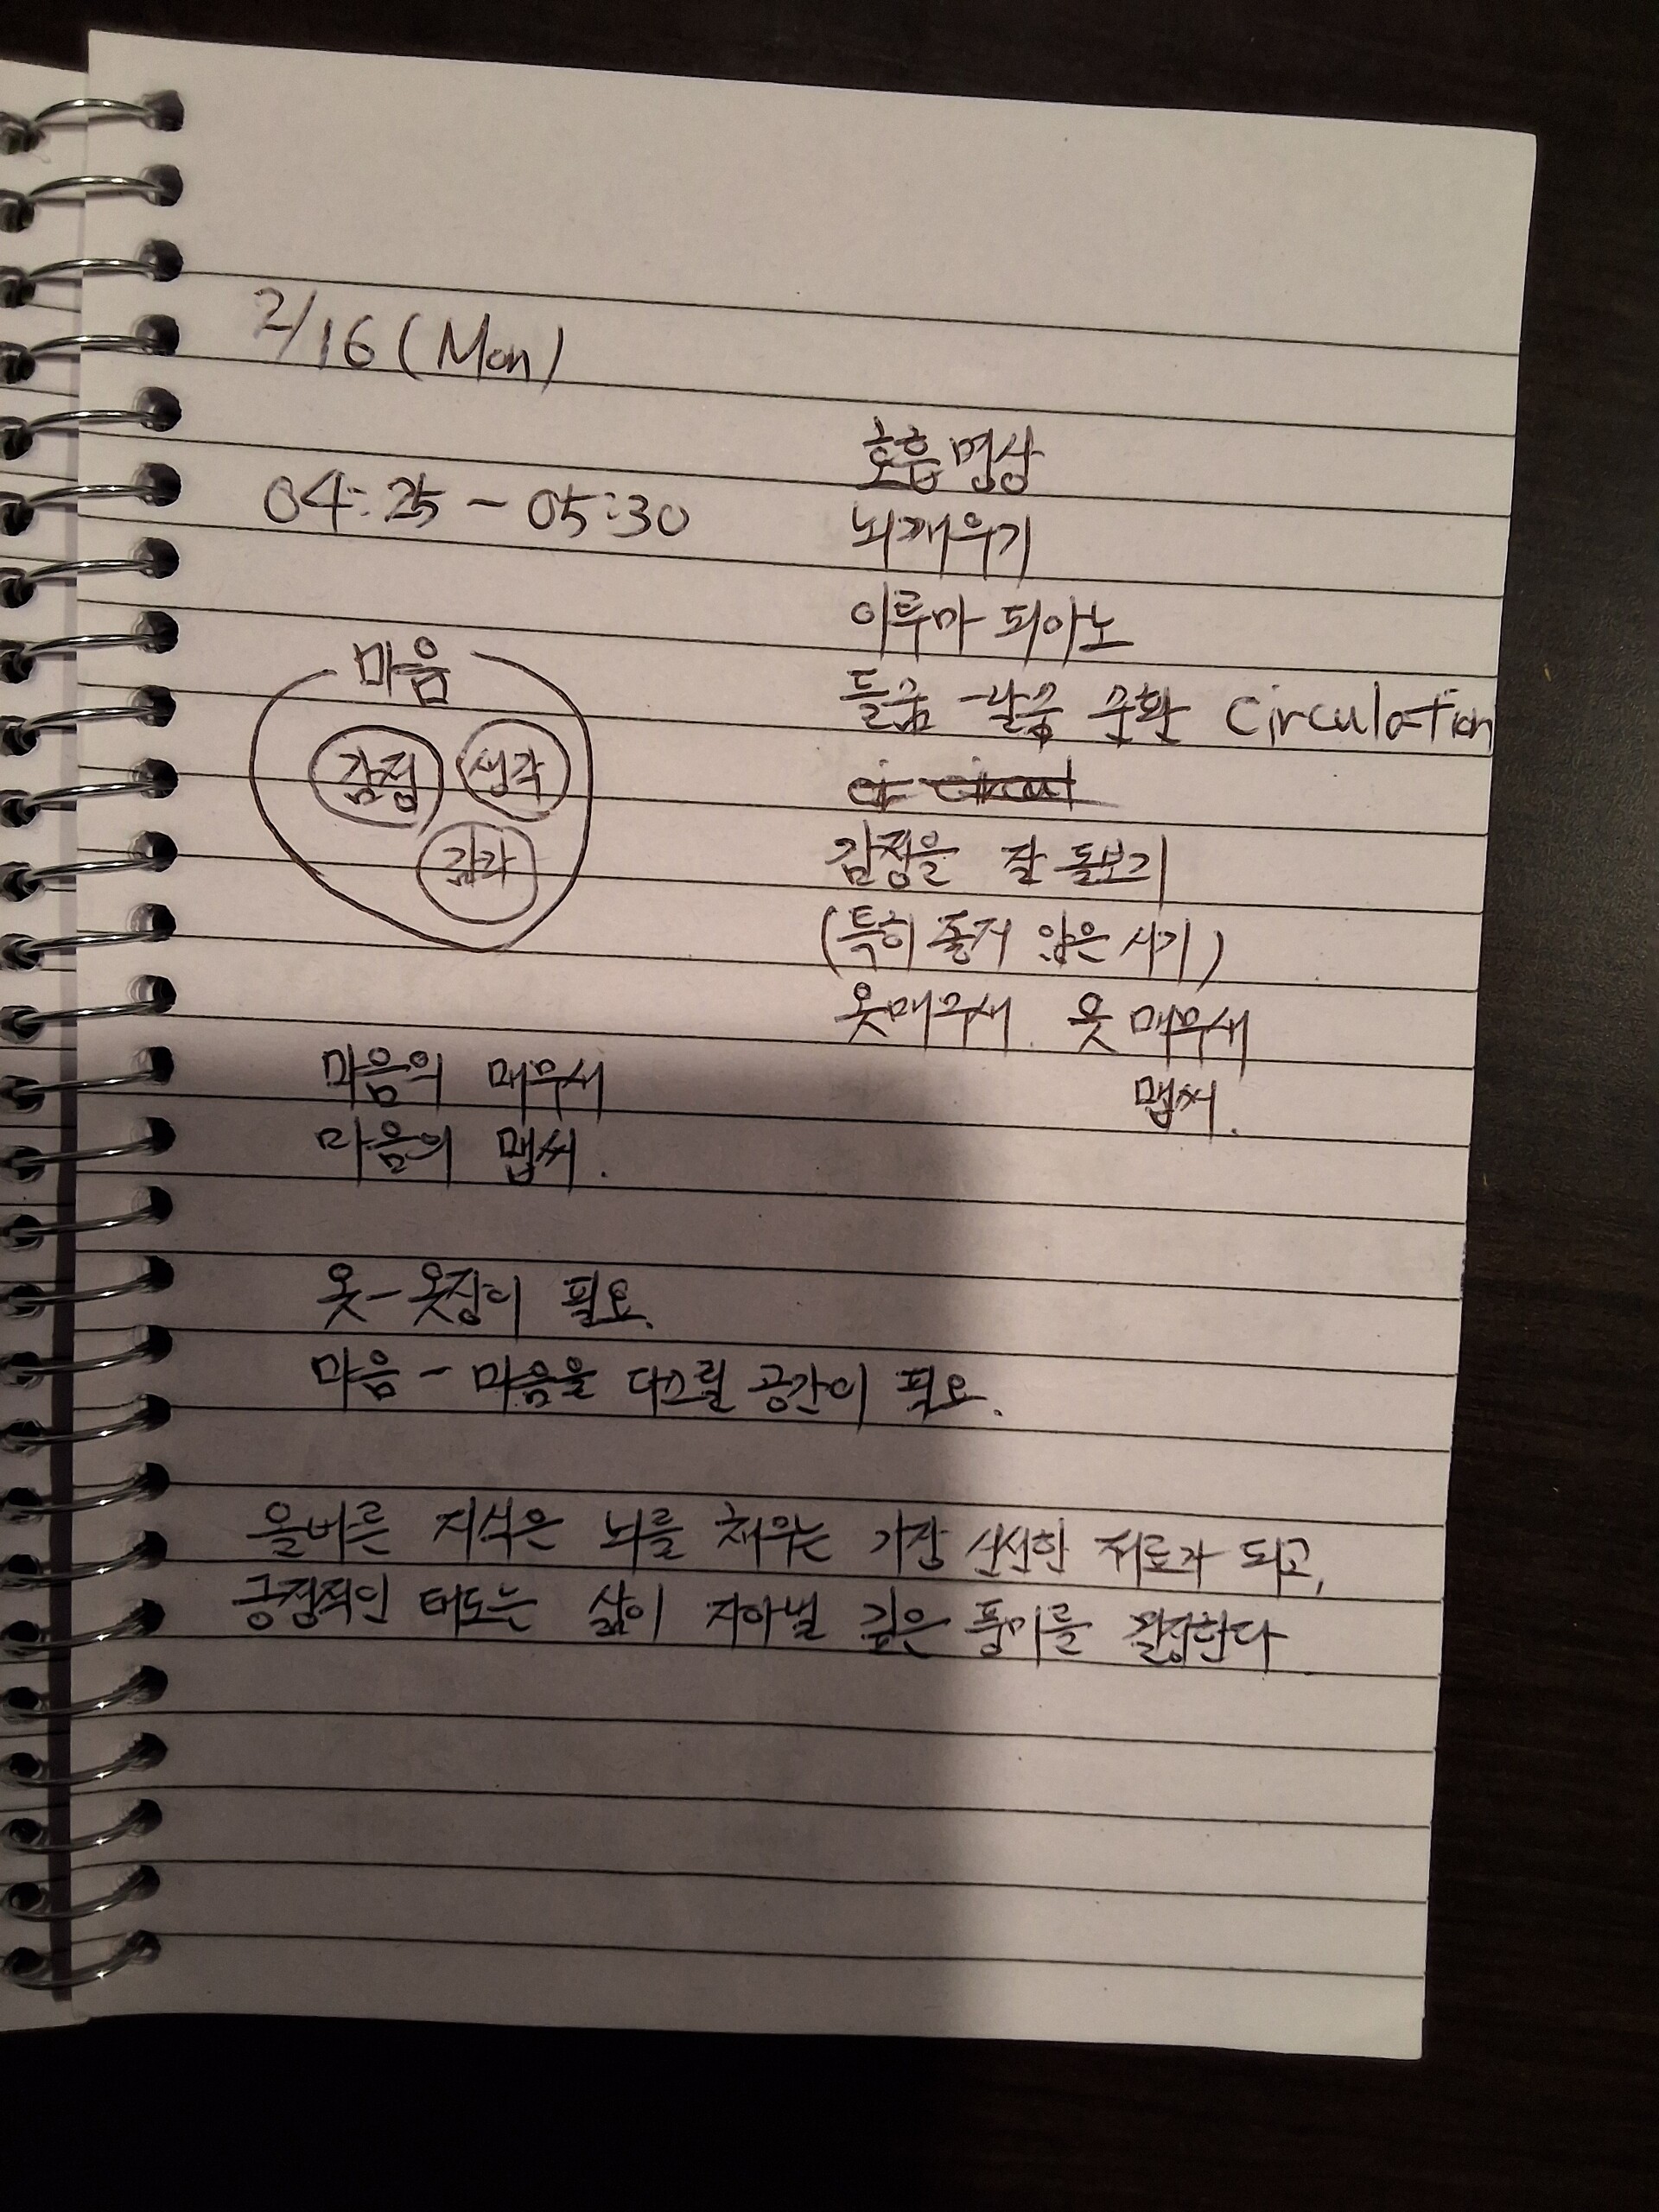 2/16 (Mon)
04:25 ~ 05:30
호흡명상
뇌깨우기
이루마 피아노
들숨 - 날숨 순환 Circulation
마음
감정 생각
감각
감정을 잘 돌보기
(특히 좋지 않은 시기)
옷매무새. 옷 매무새
맵씨.
마음의 매무새
마음의 맵씨.
옷 - 옷장이 필요.
마음 - 마음을 다스릴 공간이 필요.
올바른 지식은 뇌를 채우는 가장 신선한 재료가 되고,
긍정적인 태도는 삶이 자아낼 깊은 풍미를 결정한다